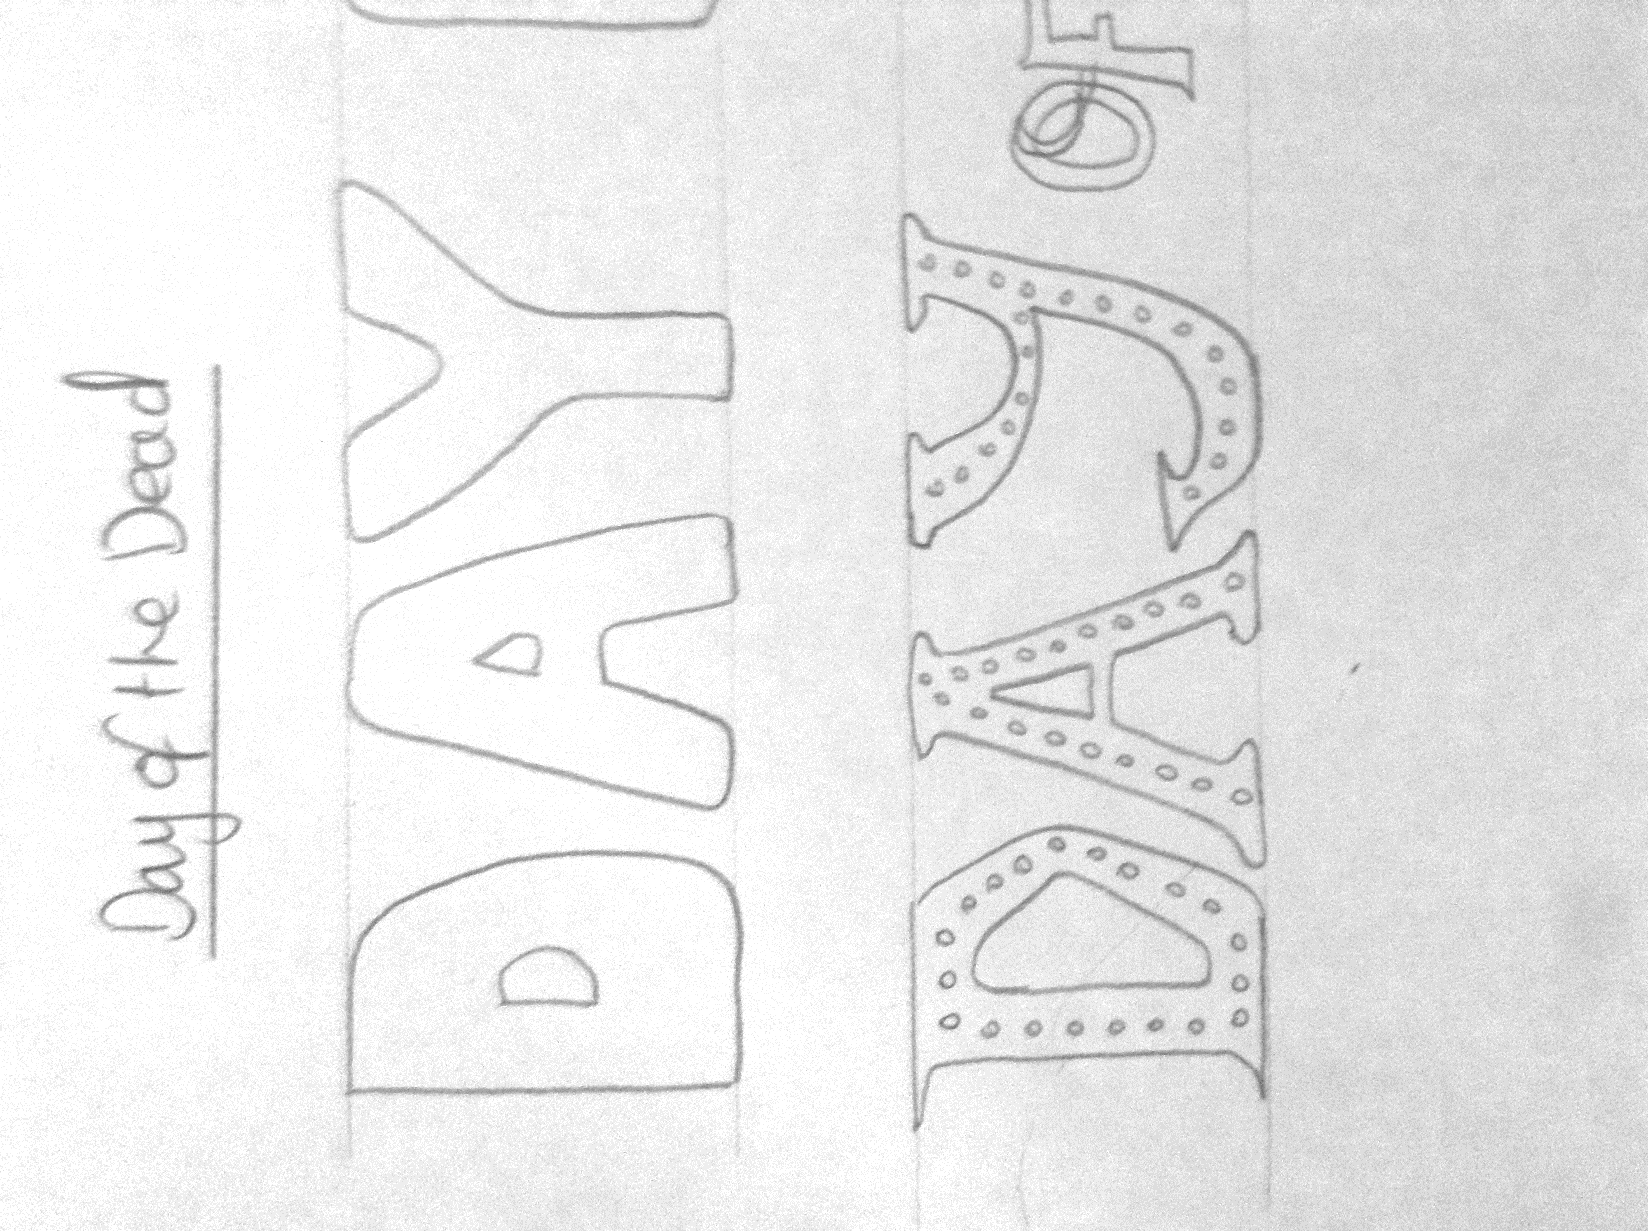 Day of the Dead
DAY
DAY OF